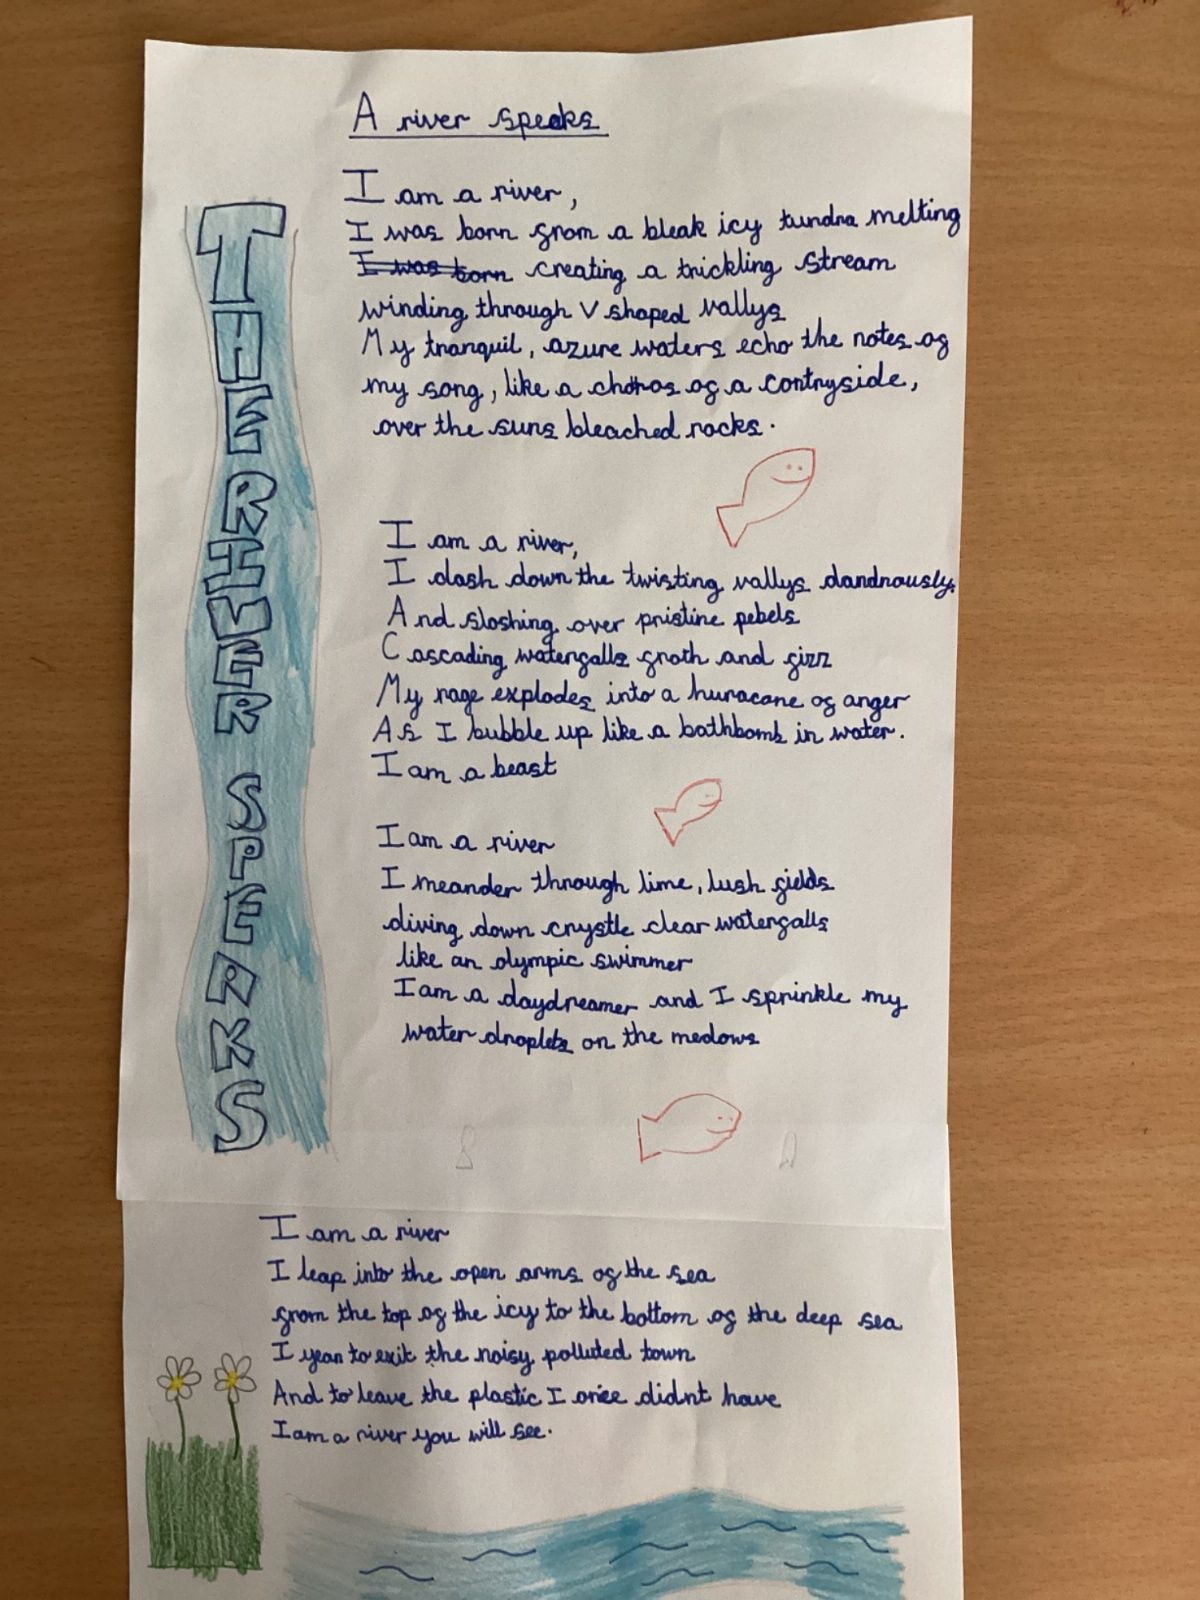 A river speaks
THE RIVER SPEAKS
I am a river,
I was born from a bleak icy tundra melting
I was born creating a trickling stream
winding through V shaped vallys
My tranquil, azure waters echo the notes of
my song, like a choros of a contryside,
over the suns bleached rocks.
I am a river,
I dash down the twisting vallys dandrously.
And sloshing over pristine pebels
Cascading waterfalls froth and fizz
My rage explodes into a huracane of anger
As I bubble up like a bathbomb in water.
I am a beast
I am a river
I meander through lime, lush fields
diving down crystle clear waterfalls
like an olympic swimmer
I am a daydreamer and I sprinkle my
water droplets on the medows
I am a river
I leap into the open arms of the sea
from the top of the icy to the bottom of the deep sea
I yean to exit the noisy polluted town
And to leave the plastic I once didnt have
I am a river you will see.